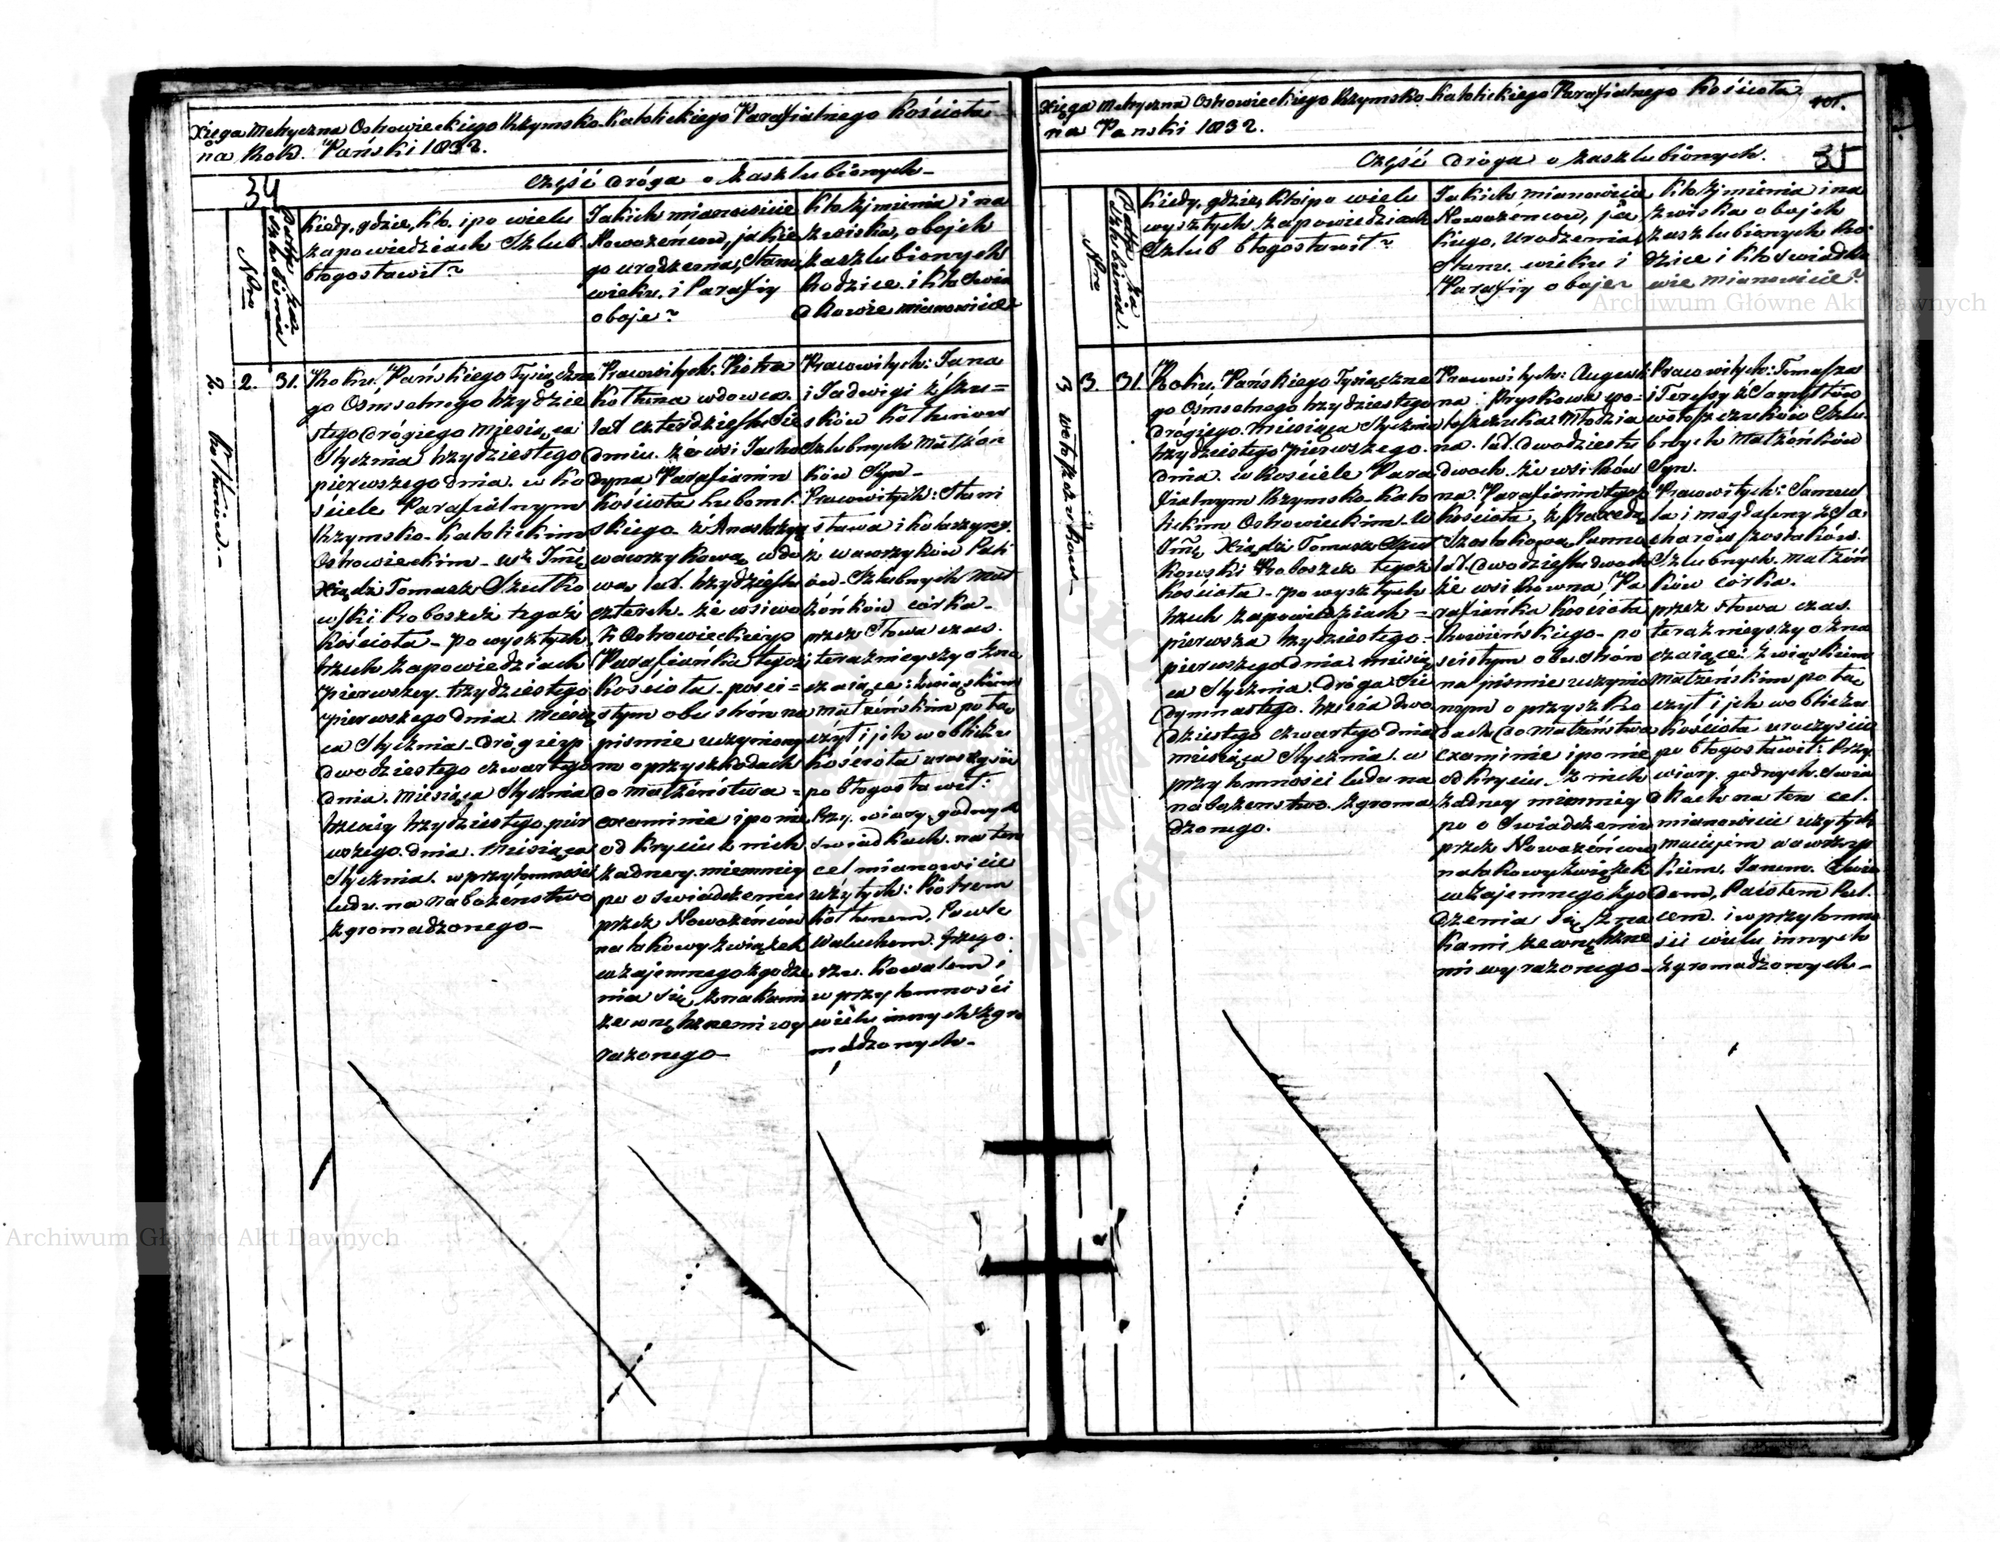 Xięga Metryczna Ostrowieckiego Rzymsko-Katolickiego Parafialnego Kościoła
na Rok Pański 1832.
34
Część dróga o zaszlubionych
Nro
Kiedy, gdzie, kto, i po wielu
zapowiedziach Szlub
błogosławił?
Jakich mianowicie
Nowożeńców, jakie
go urodzenia, Stanu,
wieku, i Parafiy
oboje?
Kto z jmienia i na
zwiska, obojch
zaszlubionych
Rodzice i kto Swia
dkowie mianowicie
2. Kothunow
2.
31.
Roku Pańskiego Tysiączne
go Osmsetnego trzydzie
stego drógiego miesiąca
Stycznia trzydziestego
pierwszego dnia w Ko
ściele Parafialnym
Rzymsko-Katolickim
Ostrowieckim W. Jmć
Xiądz Tomasz Szutko
wski Proboszcz tegoż
Kościoła po wyszłych
trzech zapowiedziach
pierwszey trzydziestego
pierwszego dnia miesią
ca Stycznia drógiey
dwódziestego czwartego
dnia miesiąca Stycznia
trzeciey trzydziestego pier
wszego dnia Miesiąca
Stycznia w przytomności
ludu na nabożeństwo
zgromadzonego
Pracowitych Piotra
Kothuna wdowca
lat czterdziestu Sie
dmiu ze wsi
Parafianin
Kościoła Luboml
skiego z
wawrzykową wdo
wą lat trzydziestu
czterech ze wsi wo
li Ostrowieckiey
Parafianka tegoż
Kościoła po ści=
słym obu stron na
pismie uczyniony
m o przyszkodach
do małżeństwa =
examinie i po nie
odkryciu z nich
żadney niemniey
po oswiadczeniu
przez Nowożeńców
na takowy związek
wzajemnego zgodze
nia się znakami
zewnętrznemi wy
rażonego
Pracowitych: Jana
i Jadwigi z
Kothunow
Szlubnych Małżon
ków Syn
Pracowitych: Stani
sława i Katarzyny
z wawrzyków
Szlubnych Mał
żonków córka
przez Słowa czas
teraźnieyszy ozna
czaiące: związkiem
małżeńskim połą
czył i jch w obliczu
Kościoła uroczyscie
pobłogosławił:
Przy wiary godnych
Swiadkach na ten
cel mianowicie
użytych: Piotrem
Kothunem, Pawłe
Waluchem, Grzego
rzem Kowalem i
w przytomności
wielu innych zgro
madzonych
Xięga Metryczna Ostrowieckiego Rzymsko-Katolickiego Parafialnego Kościoła
na Pański 1832.
35
Część dróga o zaszlubionych.
Nro
Kiedy, gdzie, kto, po wielu
wyszłych zapowiedziach
Szlub błogosławił?
Jakich mianowicie
Nowożeńców, ja
kiego, Urodzenia,
Stanu, wieku i
Parafiy oboje?
Kto z jmienia i na
zwiska obojch
zaszlubionych Ro
dzice i kto swiadko
wie mianowicie?
3
3.
31.
Roku Pańskiego Tysiączne
go Ośmsetnego trzydziestego
drógiego miesiąca Stycznia
trzydziestego pierwszego
dnia w Kościele Para
fialnym Rzymsko-Kato
lickim Ostrowieckim W
Jmć Xiądz Tomasz Szut
kowski Proboszcz tegoż
Kościoła po wyszłych
trzech zapowiedziach =
pierwsza trzydziestego
pierwszego dnia miesią
ca Stycznia dróga Sie
dymnastego trzecia dwó
dziestego czwartego dnia
miesiąca Stycznia w
przytomności ludu na
nabożeństwo zgroma
dzonego.
Pracowitych: Augusti
na Młodzia
na lat dwódziestu
dwóch ze wsi Rów
na Parafianin tegoż
Kościoła z
Szostakową Panną
lat dwódziestu dwóch
ze wsi Rowna, Pa
rafianka Kościoła
po
ścistym obu stron
na pismie uczynio
nym o przyszko
dach do Małżeństwa
examinie i po nie
odkryciu z nich
żadney niemniey
po oswiadczeniu
przez Nowożeńców
na takowy związek
wzajemnego zgo
dzenia Się Zna
kami zewnętrzne
mi wyrażonego
Pracowitych: Tomasza
i Teressy z
wołoszczuków Szlu
bnych Małżonków
Syn.
Pracowitych: Samue
la i Magdaleny z Za
charów Szostaków
Szlubnych Małżon
ków córka.
przez słowa czas
teraźnieyszy ozna
czaiące: Związkiem
Małżeńskim połą
czył i jch w obliczu
Kościoła uroczyscie
pobłogosławił: Przy
wiary godnych Swia
dkach na ten cel
mianowicie użytych
Maciejem Wawrzy
kiem, Janem
Pawłem
i w przytomno
ści wielu innych
zgromadzonych
Archiwum Główne Akt Dawnych
Archiwum Główne Akt Dawnych